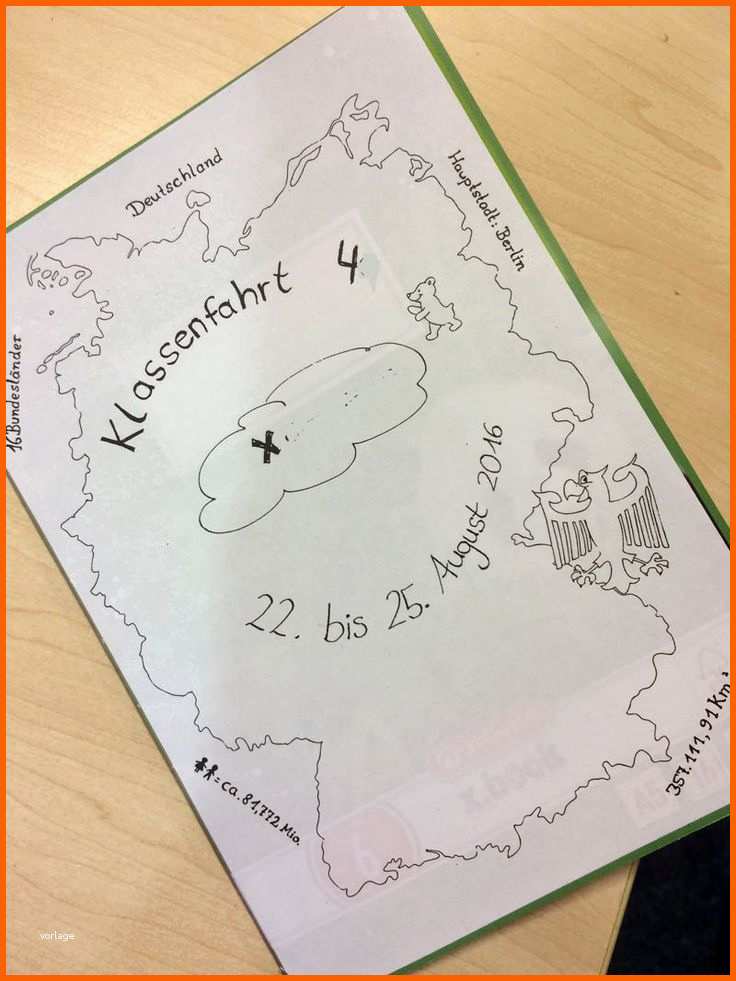 Deutschland
Hauptstadt: Berlin
16 Bundesländer
Klassenfahrt 4
x
22. bis 25. August 2016
= ca. 81,772 Mio.
357.111, 91 Km²
x.book
A5
6
vorlage